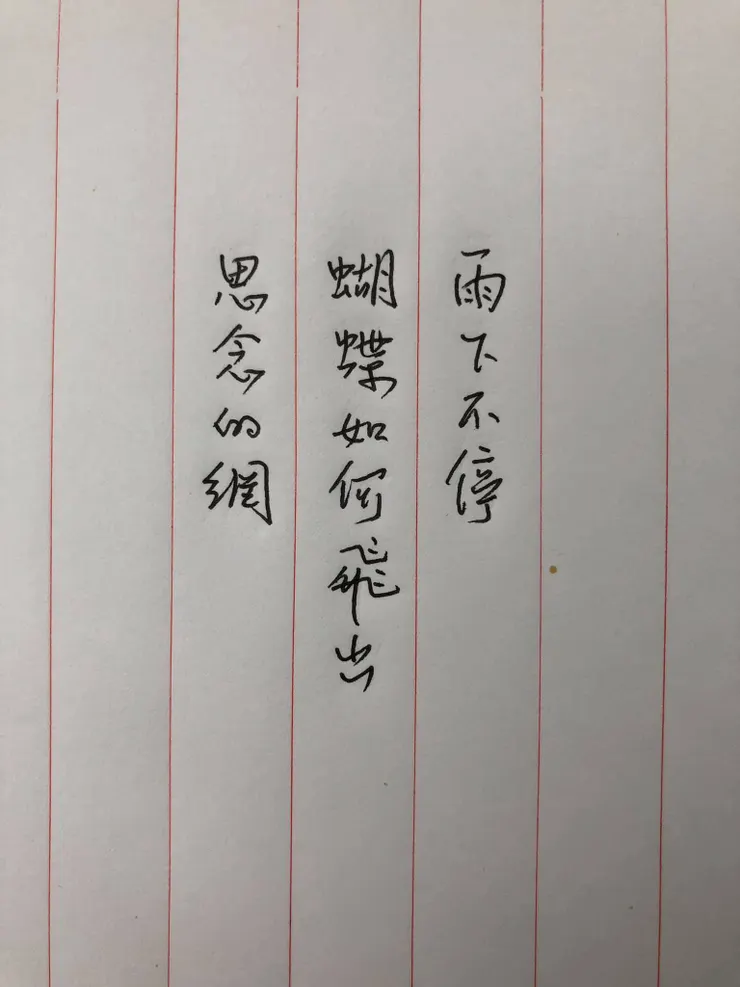 雨下不停
蝴蝶如何飛出
思念的網